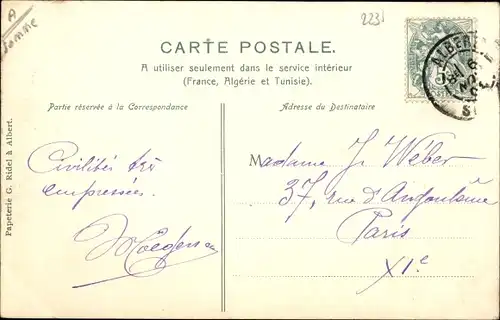 A
Somme
2231
CARTE POSTALE.
A utiliser seulement dans le service intérieur
(France, Algérie et Tunisie).
Partie réservée à la Correspondance
Adresse du Destinataire
ALBERT
5
Papeterie G. Ridel à Albert.
Civilités très
empressées.
Madame J. Wéber
37, rue d'Angoulême
Paris
XIe